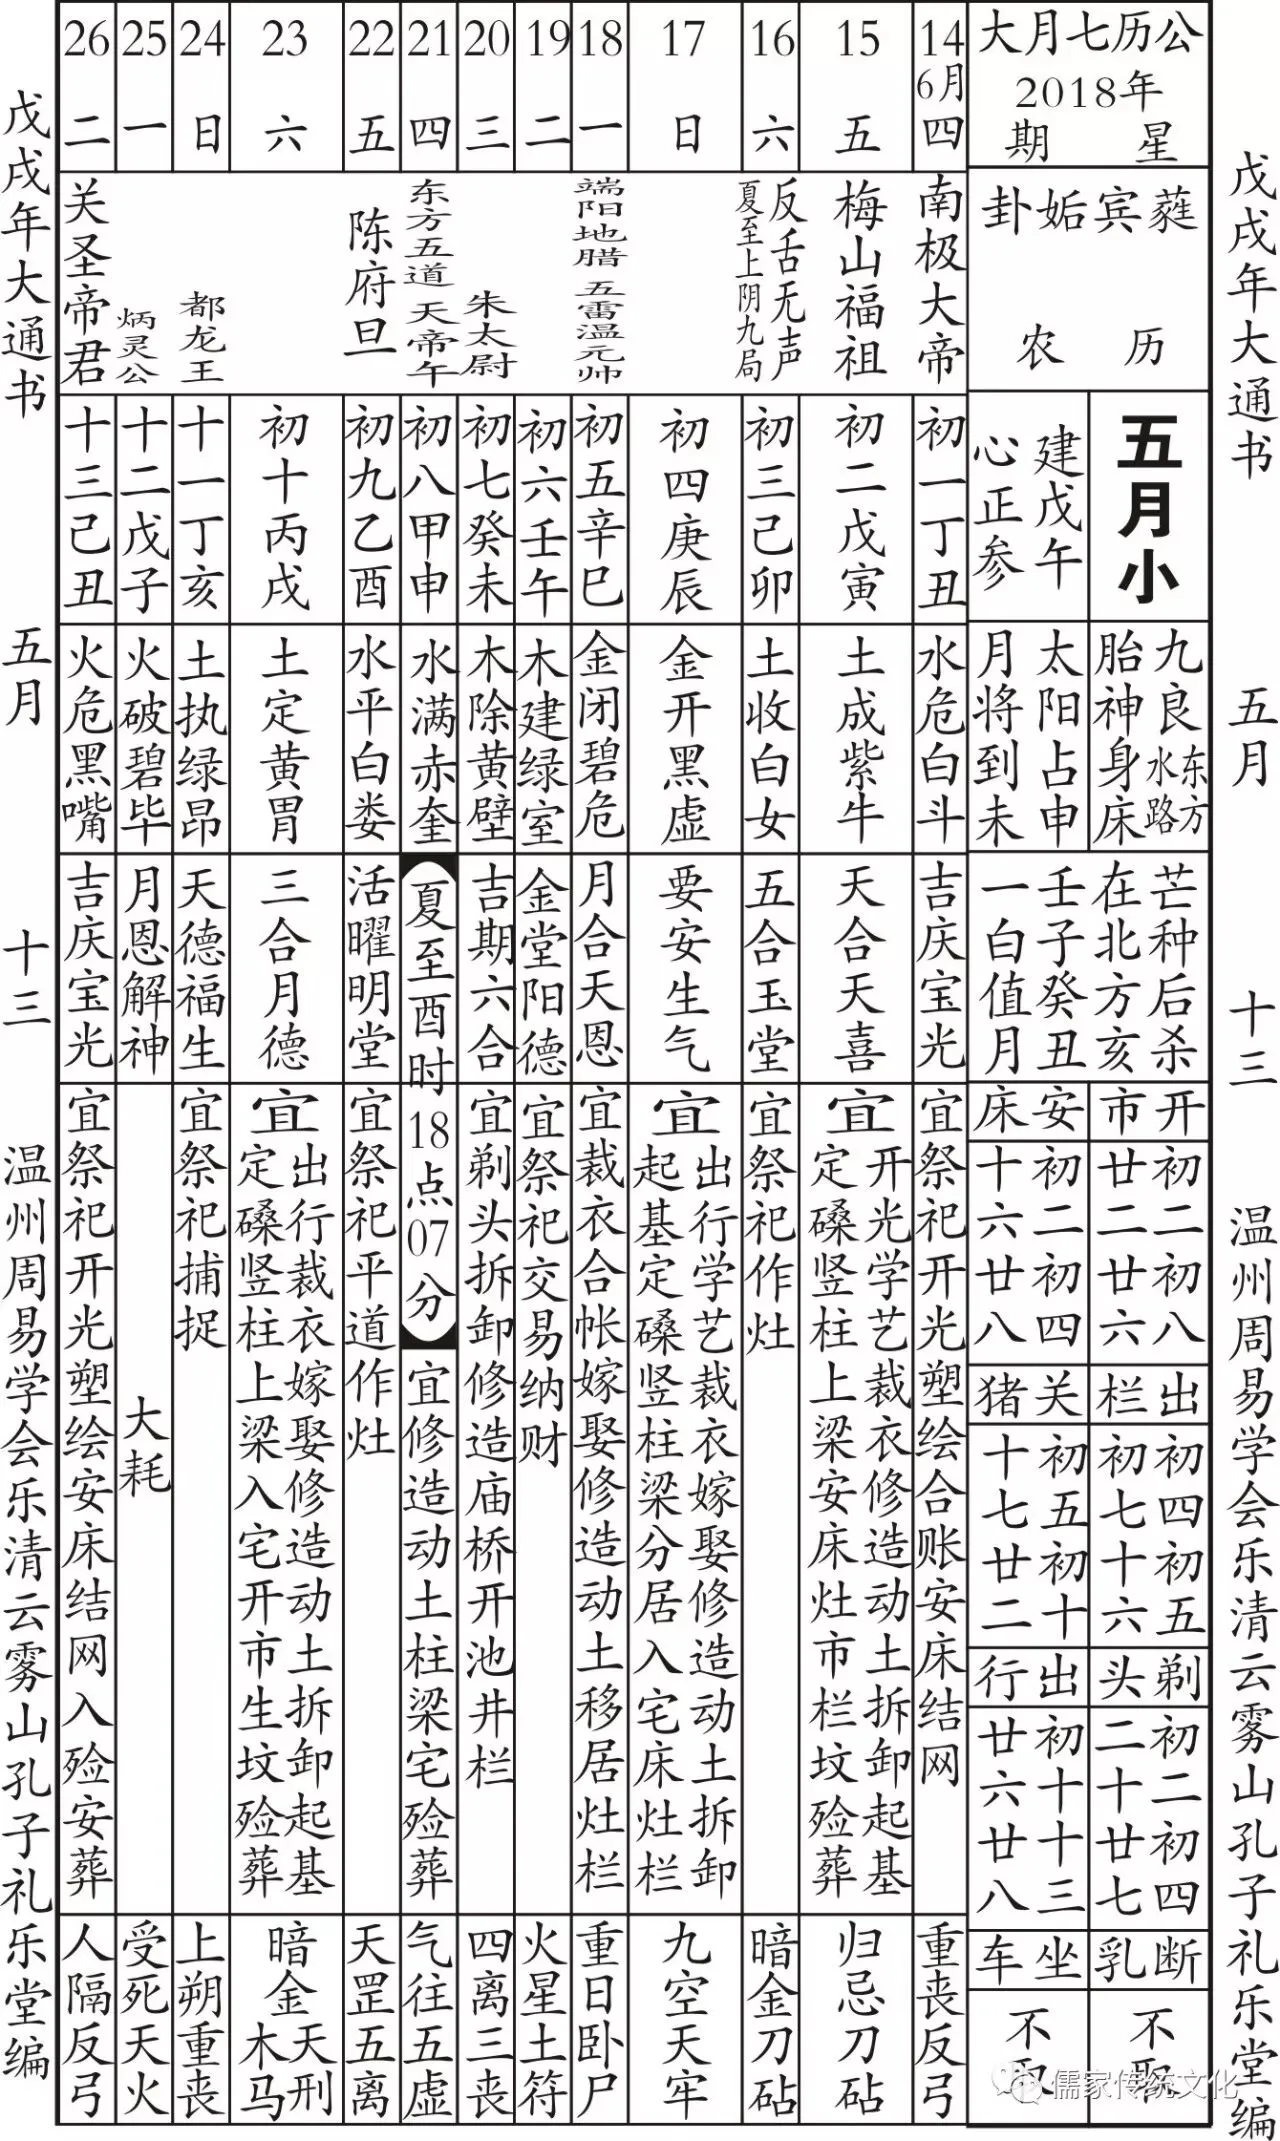 戊戌年大通书 五月 十三 温州周易学会乐清云雾山孔子礼乐堂编
公历七月大
2018年
星期
蕤宾姤卦
农历
五月小
建戊午
心正参
九良东方水路
胎神身床
太阳占申
月将到未
芒种后杀
在北方亥
壬子癸丑
一白值月
开市
初二初八
廿二廿六
安床
初二初四
十六廿八
出栏
初四初五
初七十六
关猪
初五初十
十七廿二
剃头
初二初四
二十廿七
出行
初十十三
廿六廿八
断乳
不取
坐车
不取
14
6月
四
南极大帝
初一丁丑
水危白斗
吉庆宝光
宜祭祀开光塑绘合账安床结网
重丧反弓
15
五
梅山福祖
初二戊寅
土成紫牛
天合天喜
宜
开光学艺裁衣修造动土拆卸起基
定磉竖柱上梁安床灶市栏坟殓葬
归忌刀砧
16
六
反舌无声
夏至上阴九局
初三己卯
土收白女
五合玉堂
宜祭祀作灶
暗金刀砧
17
日
初四庚辰
金开黑虚
要安生气
宜
出行学艺裁衣嫁娶修造动土拆卸
起基定磉竖柱梁分居入宅床灶栏
九空天牢
18
一
端阳地腊 五雷温元帅
初五辛巳
金闭碧危
月合天恩
宜裁衣合帐嫁娶修造动土移居灶栏
重日卧尸
19
二
初六壬午
木建绿室
金堂阳德
宜祭祀交易纳财
火星土符
20
三
朱太尉
初七癸未
木除黄壁
吉期六合
宜剃头拆卸修造庙桥开池井栏
四离三丧
21
四
东方五道 天帝午
初八甲申
水满赤奎
夏至酉时18点07分
宜修造动土柱梁宅殓葬
气往五虚
22
五
陈府旦
初九乙酉
水平白娄
活曜明堂
宜祭祀平道作灶
天罡五离
23
六
初十丙戌
土定黄胃
三合月德
宜
出行裁衣嫁娶修造动土拆卸起基
定磉竖柱上梁入宅开市生坟殓葬
暗金
天刑
木马
24
日
都龙王
十一丁亥
土执绿昴
天德福生
宜祭祀捕捉
上朔重丧
25
一
炳灵公
十二戊子
火破碧毕
月恩解神
大耗
受死天火
26
二
关圣帝君
十三己丑
火危黑嘴
吉庆宝光
宜祭祀开光塑绘安床结网入殓安葬
人隔反弓
戊戌年大通书 五月 十三 温州周易学会乐清云雾山孔子礼乐堂编
儒家传统文化